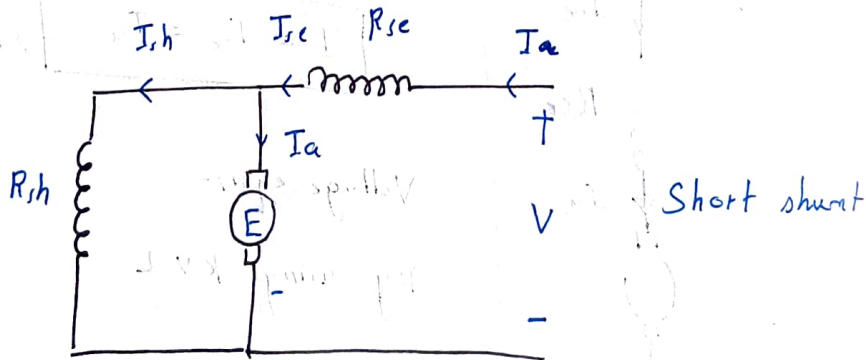 Ish Ise Rse Ia
Ia
+
Rsh
E
V
Short shunt
-
-